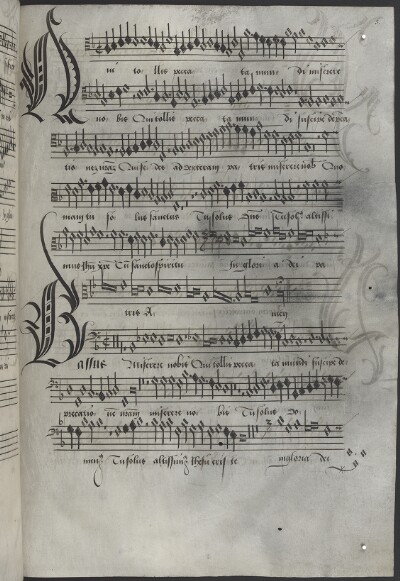 Qui tollis pecca ta mundi miserere
no bis Qui tollis pecca ta mun di suscipe depca
tio nem nram Qui se des ad dexteram pa tris miserere nob Quo
niam tu so lus sanctus Tu solus dns Tu sol altissi
mus Jhu xpe Cu sancto spiritu in glori a dei pa
tris A men
Bassus Miserere nobis Qui tollis pecca ta mundi suscipe de
precatio nem nram miserere no bis Tu solus Do
minus Tu solus altissimus Jhesu cris te in gloria dei